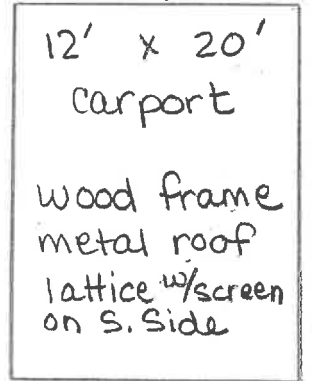 12' x 20'
carport
wood frame
metal roof
lattice w/screen
on S. Side